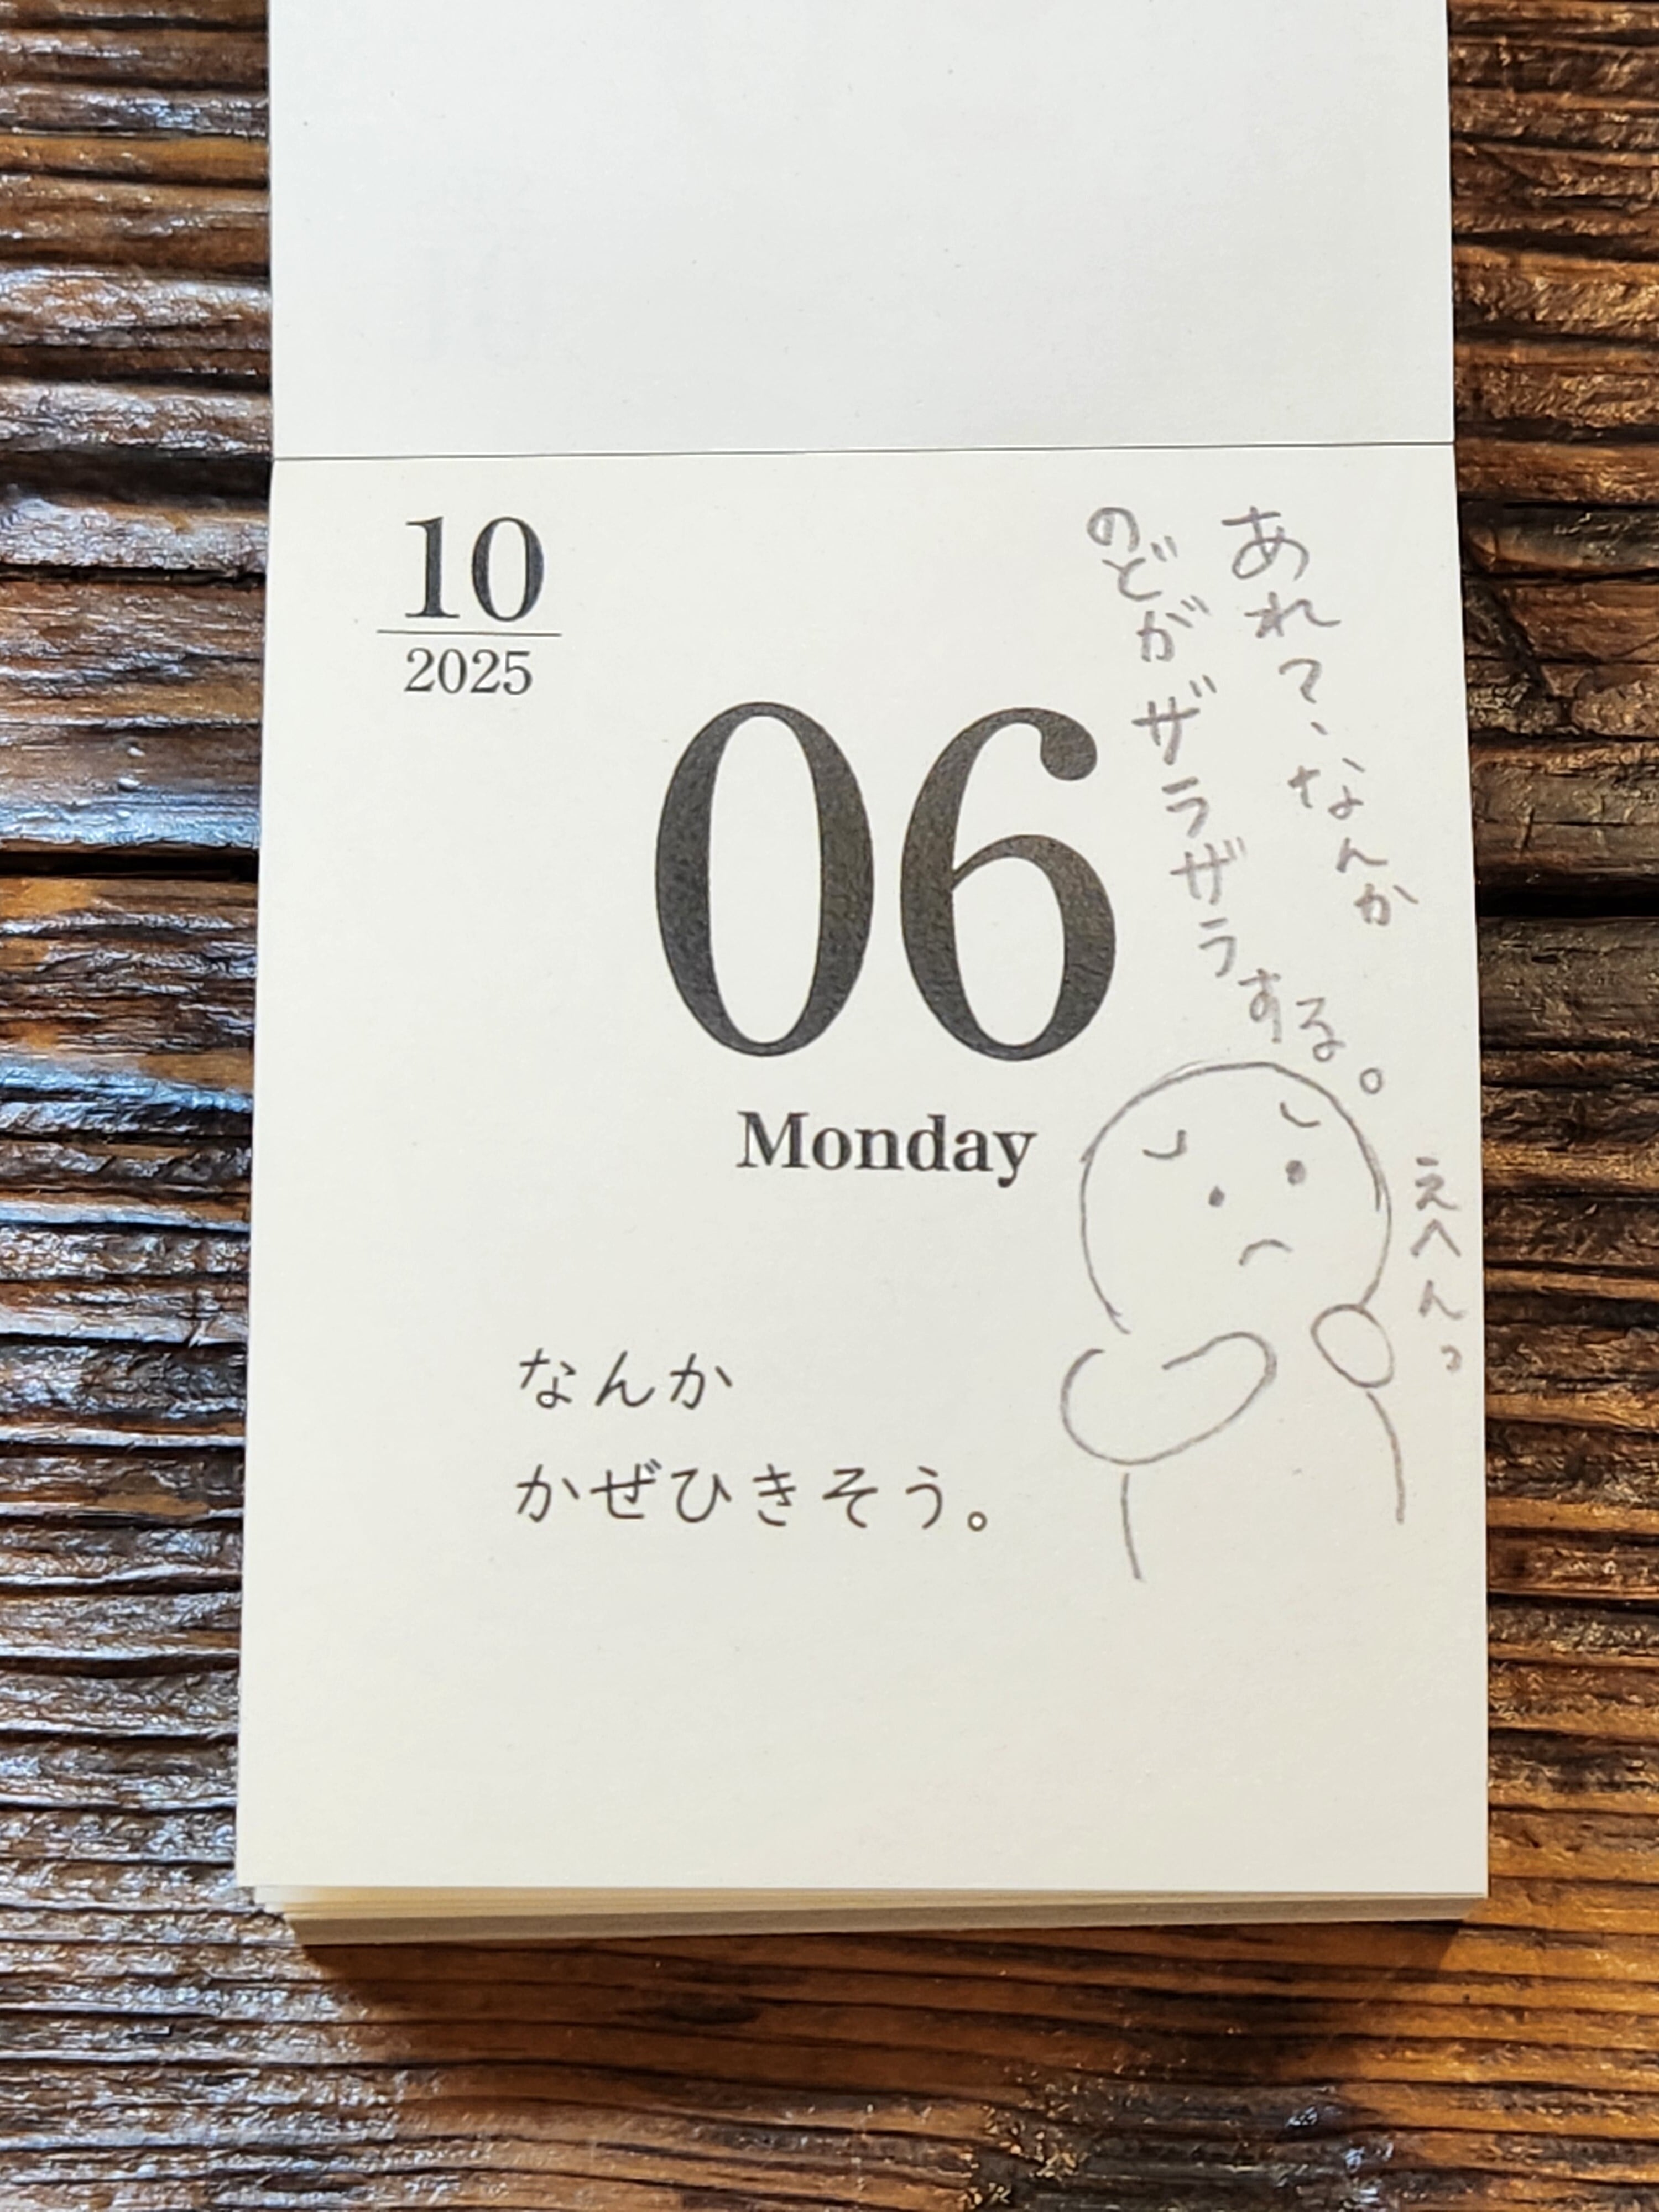 10
2025
06
Monday
あれ?、なんか
のどがザラザラする。
えへんっ
なんか
かぜひきそう。